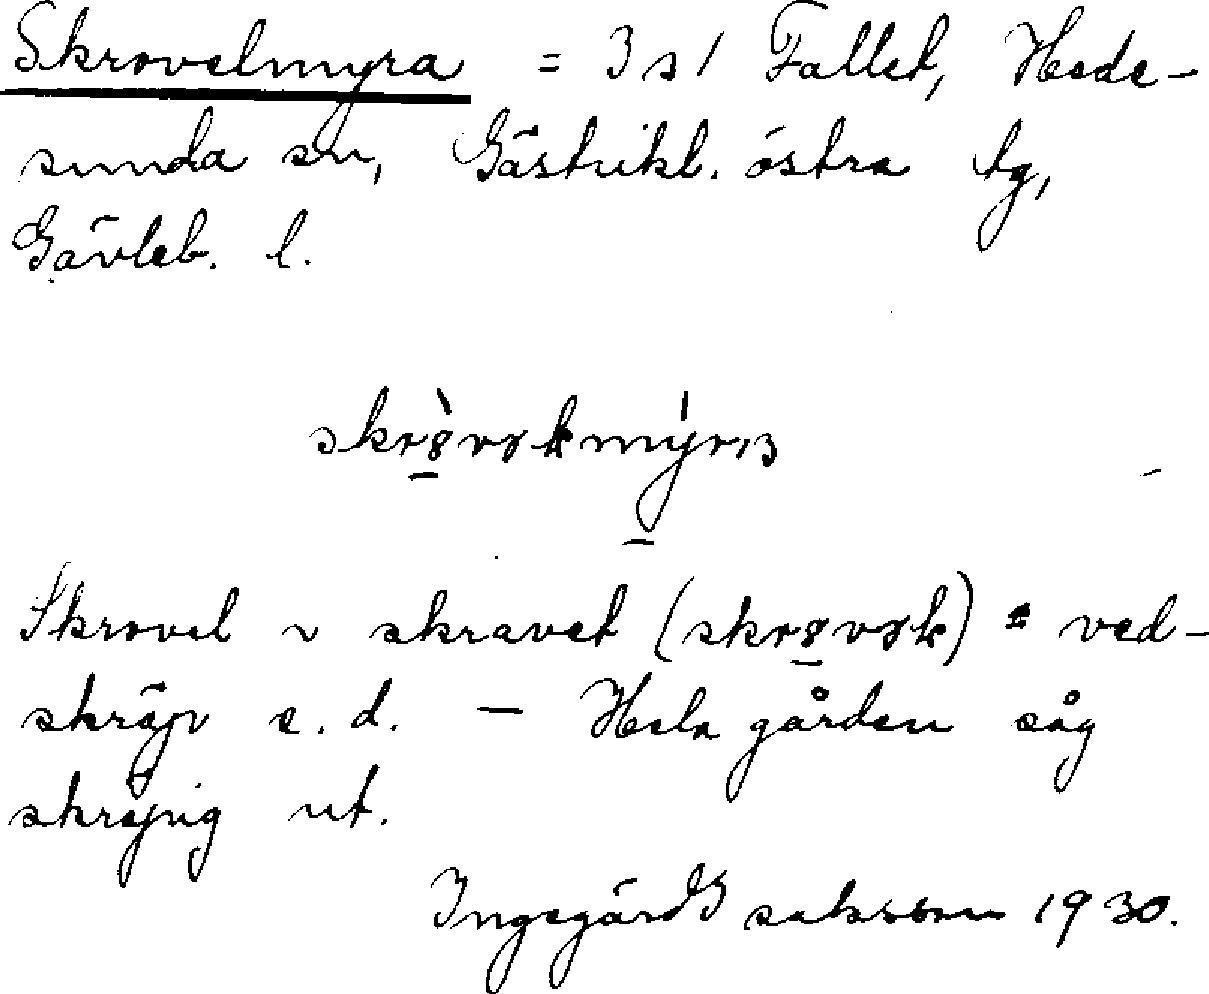 Skrovelmyra = 3 s1 Fallet, Hede-
sunda sn, Gästrikl. östra tg,
Gävleb. l.
Skrovel n skravet = ved-
skräp e. d. — Hela gården såg
skräpig ut.
Ingegärd Isaksson 1930.